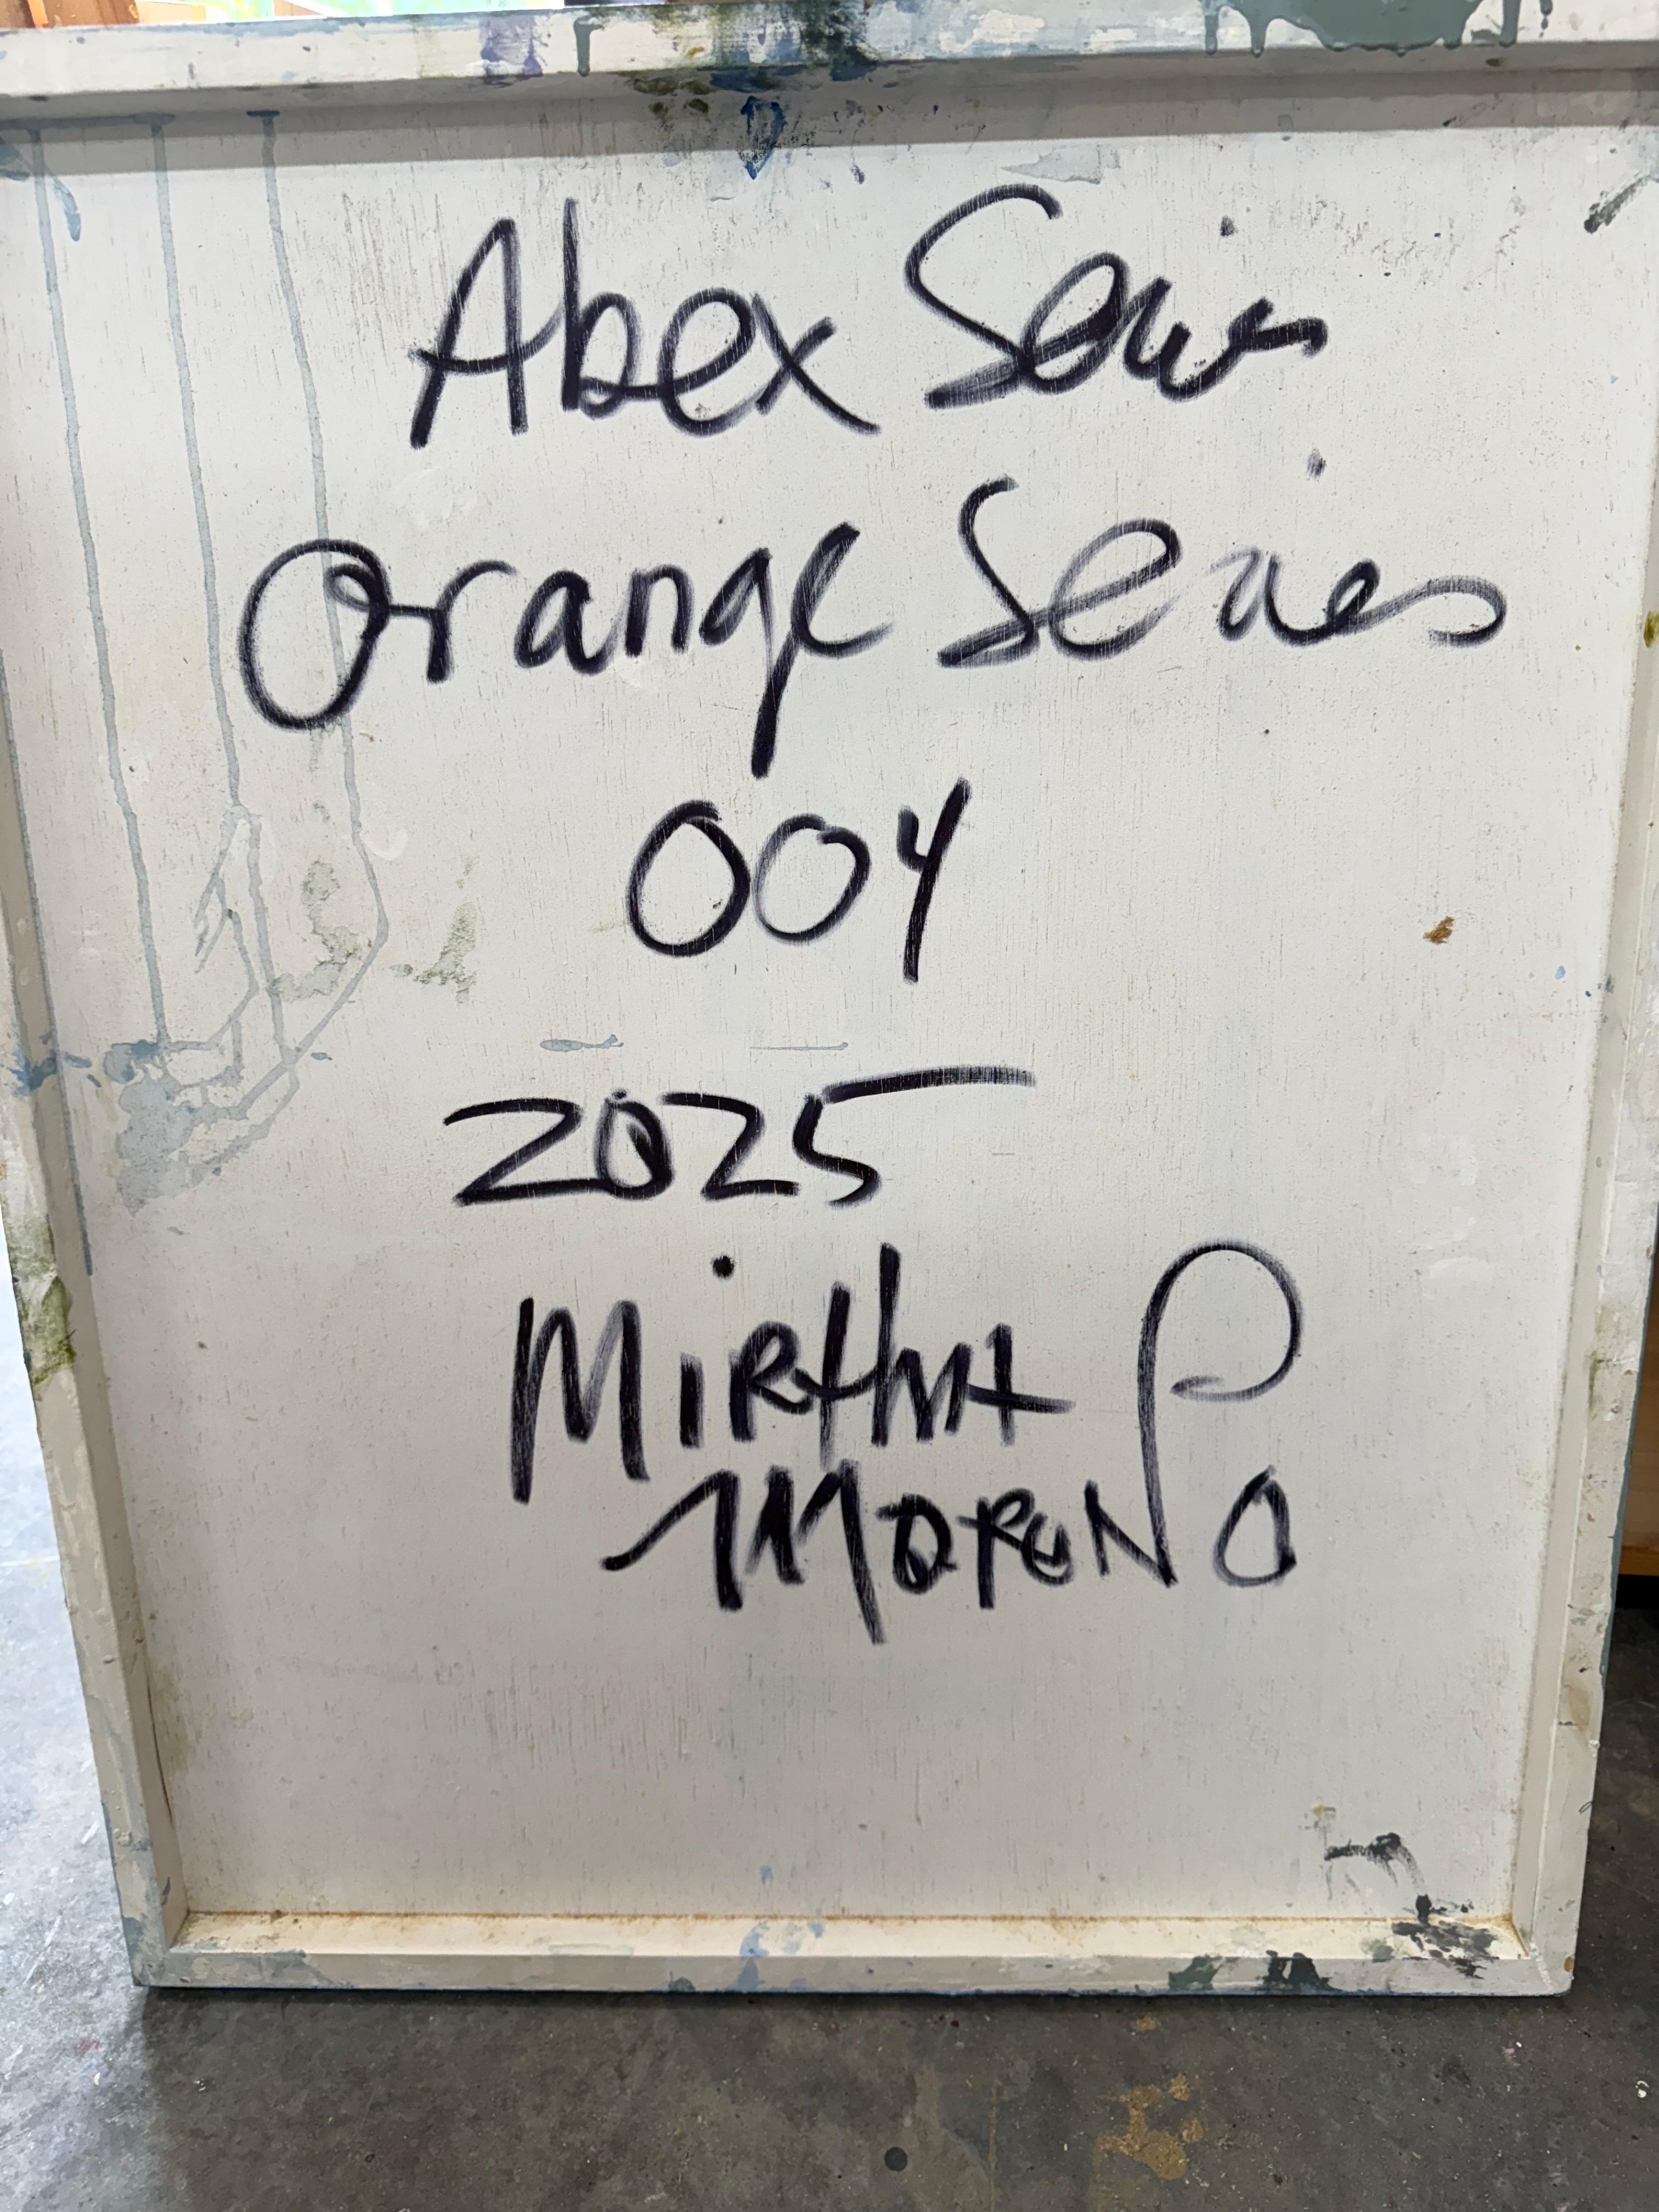 Abex Series
Orange Series
004
2025
MiRtha
MORENO